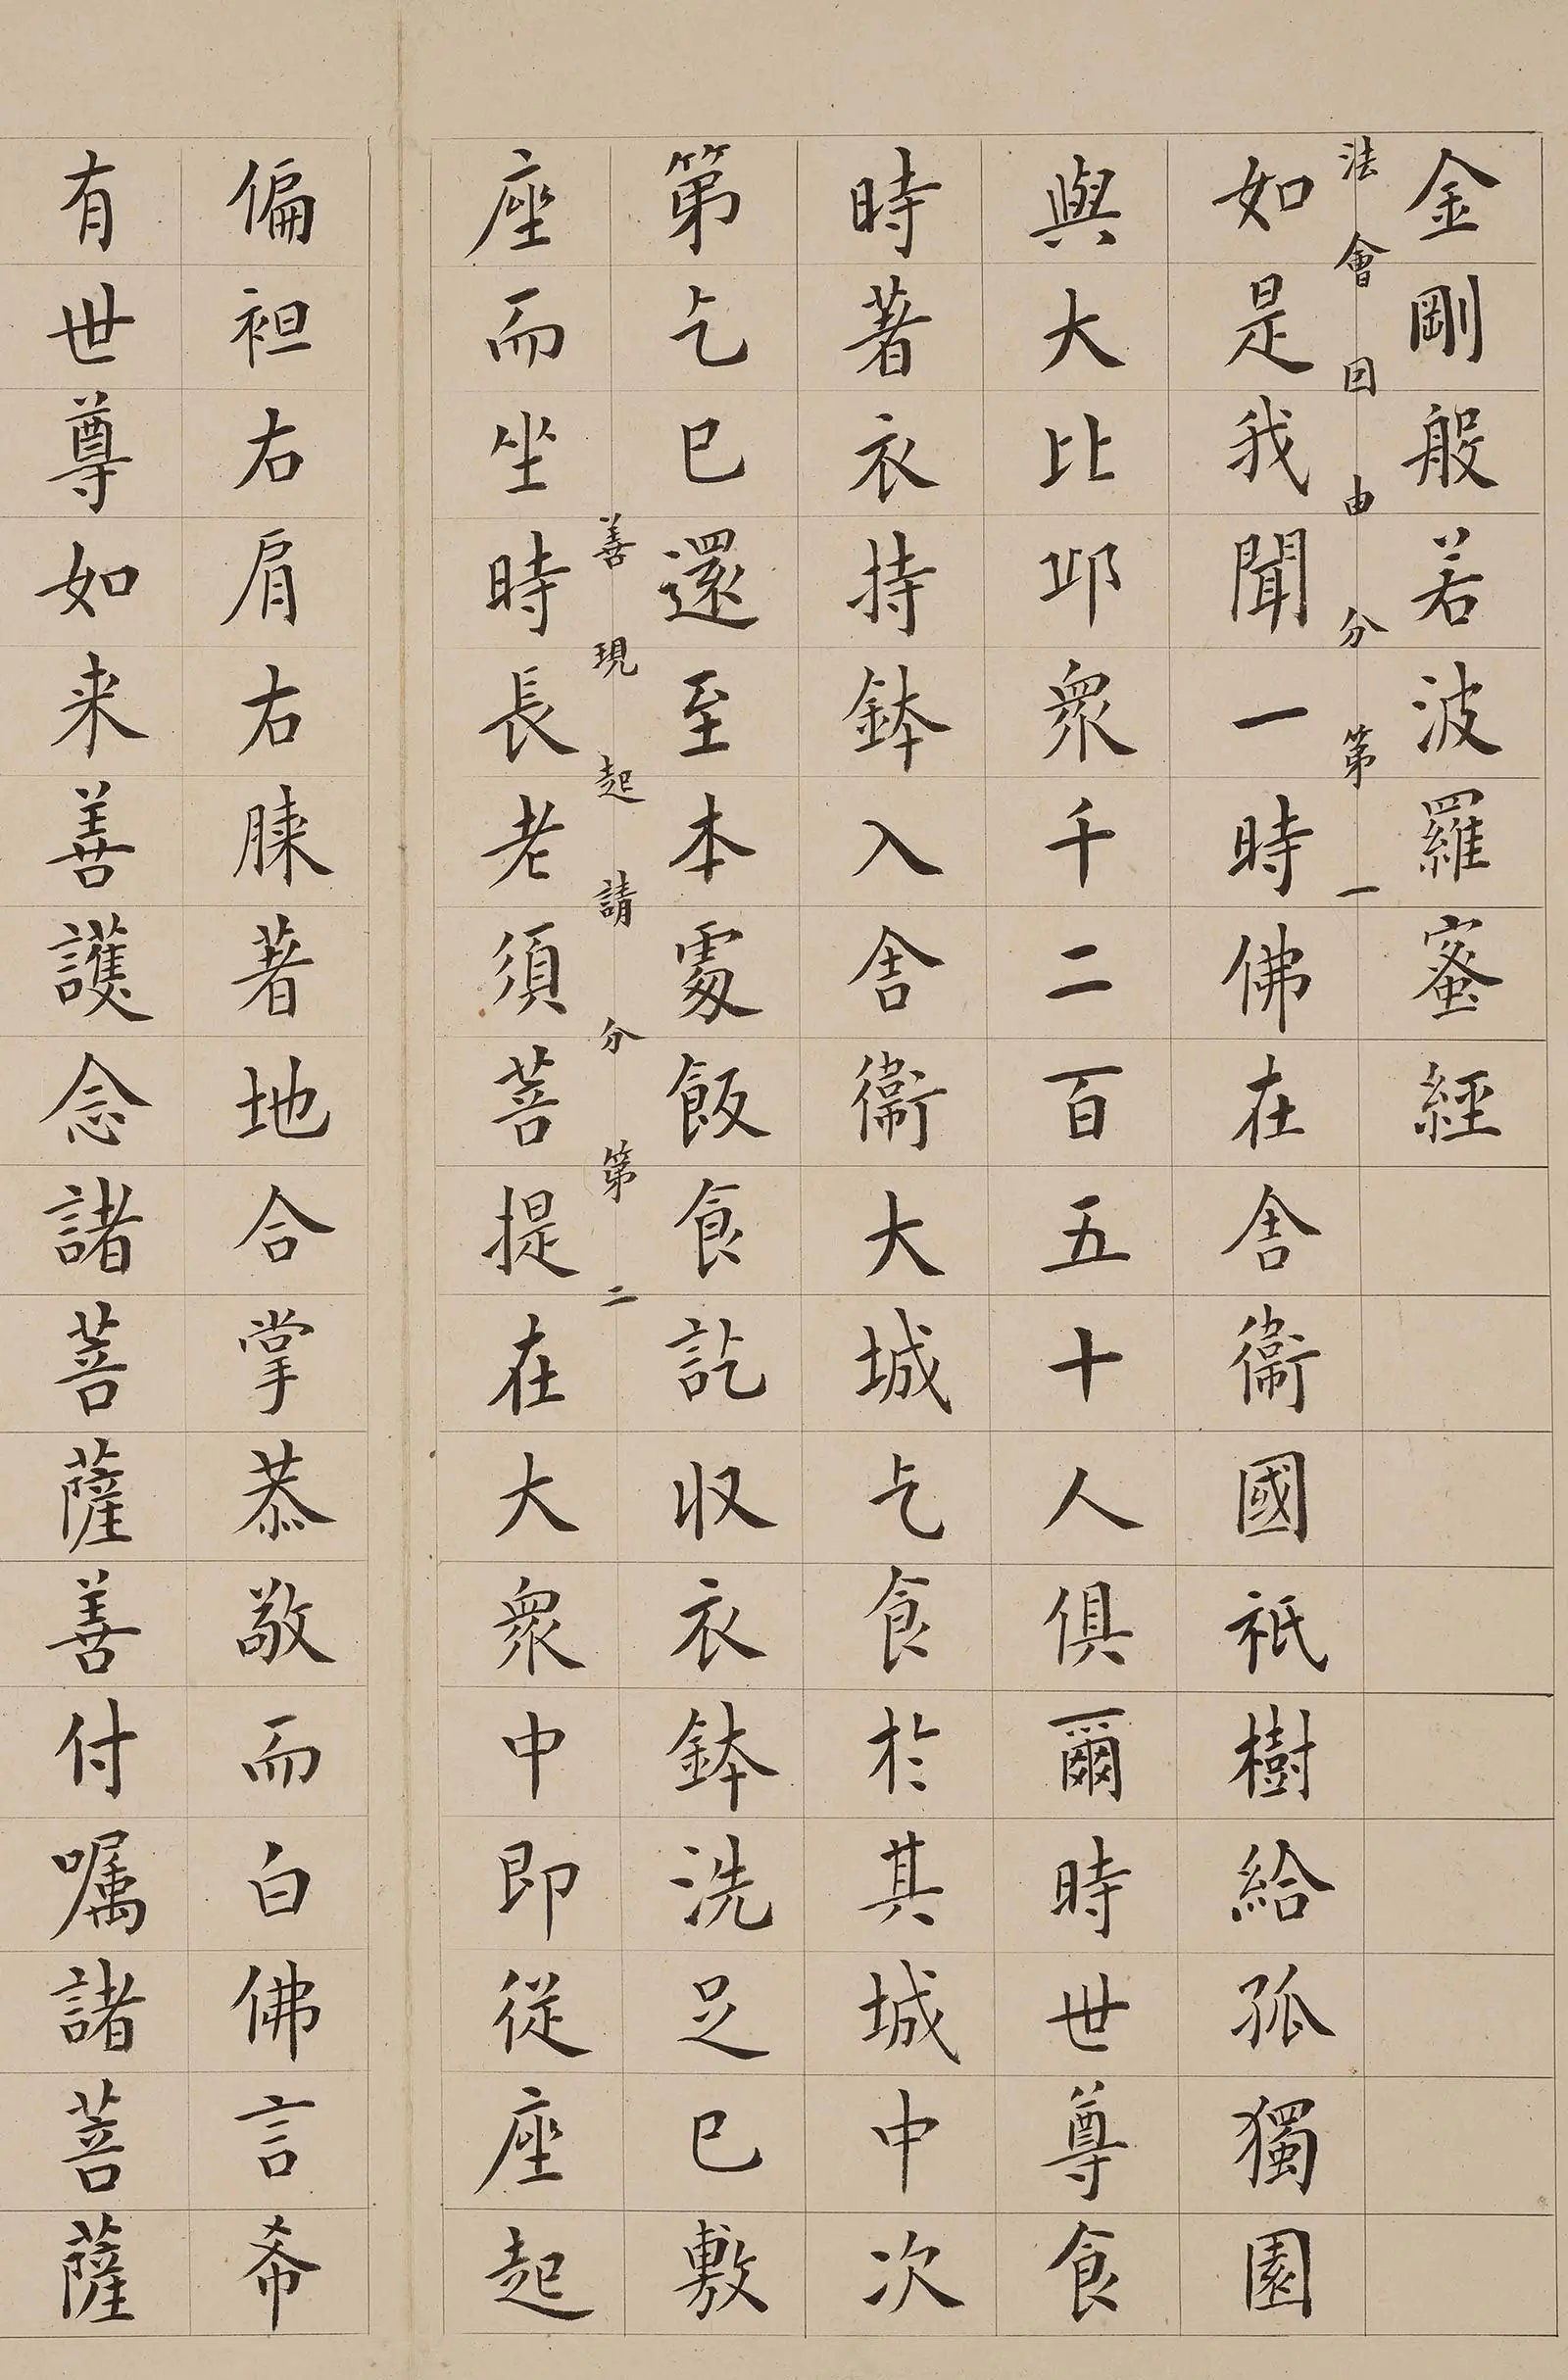 金剛般若波羅蜜經
法會因由分第一
如是我聞一時佛在舍衞國祇樹給孤獨園
與大比邱衆千二百五十人俱爾時世尊食
時著衣持鉢入舍衞大城乞食於其城中次
第乞已還至本處飯食訖收衣鉢洗足已敷
善現起請分第二
座而坐時長老須菩提在大衆中即從座起
偏袒右肩右膝著地合掌恭敬而白佛言希
有世尊如来善護念諸菩薩善付囑諸菩薩